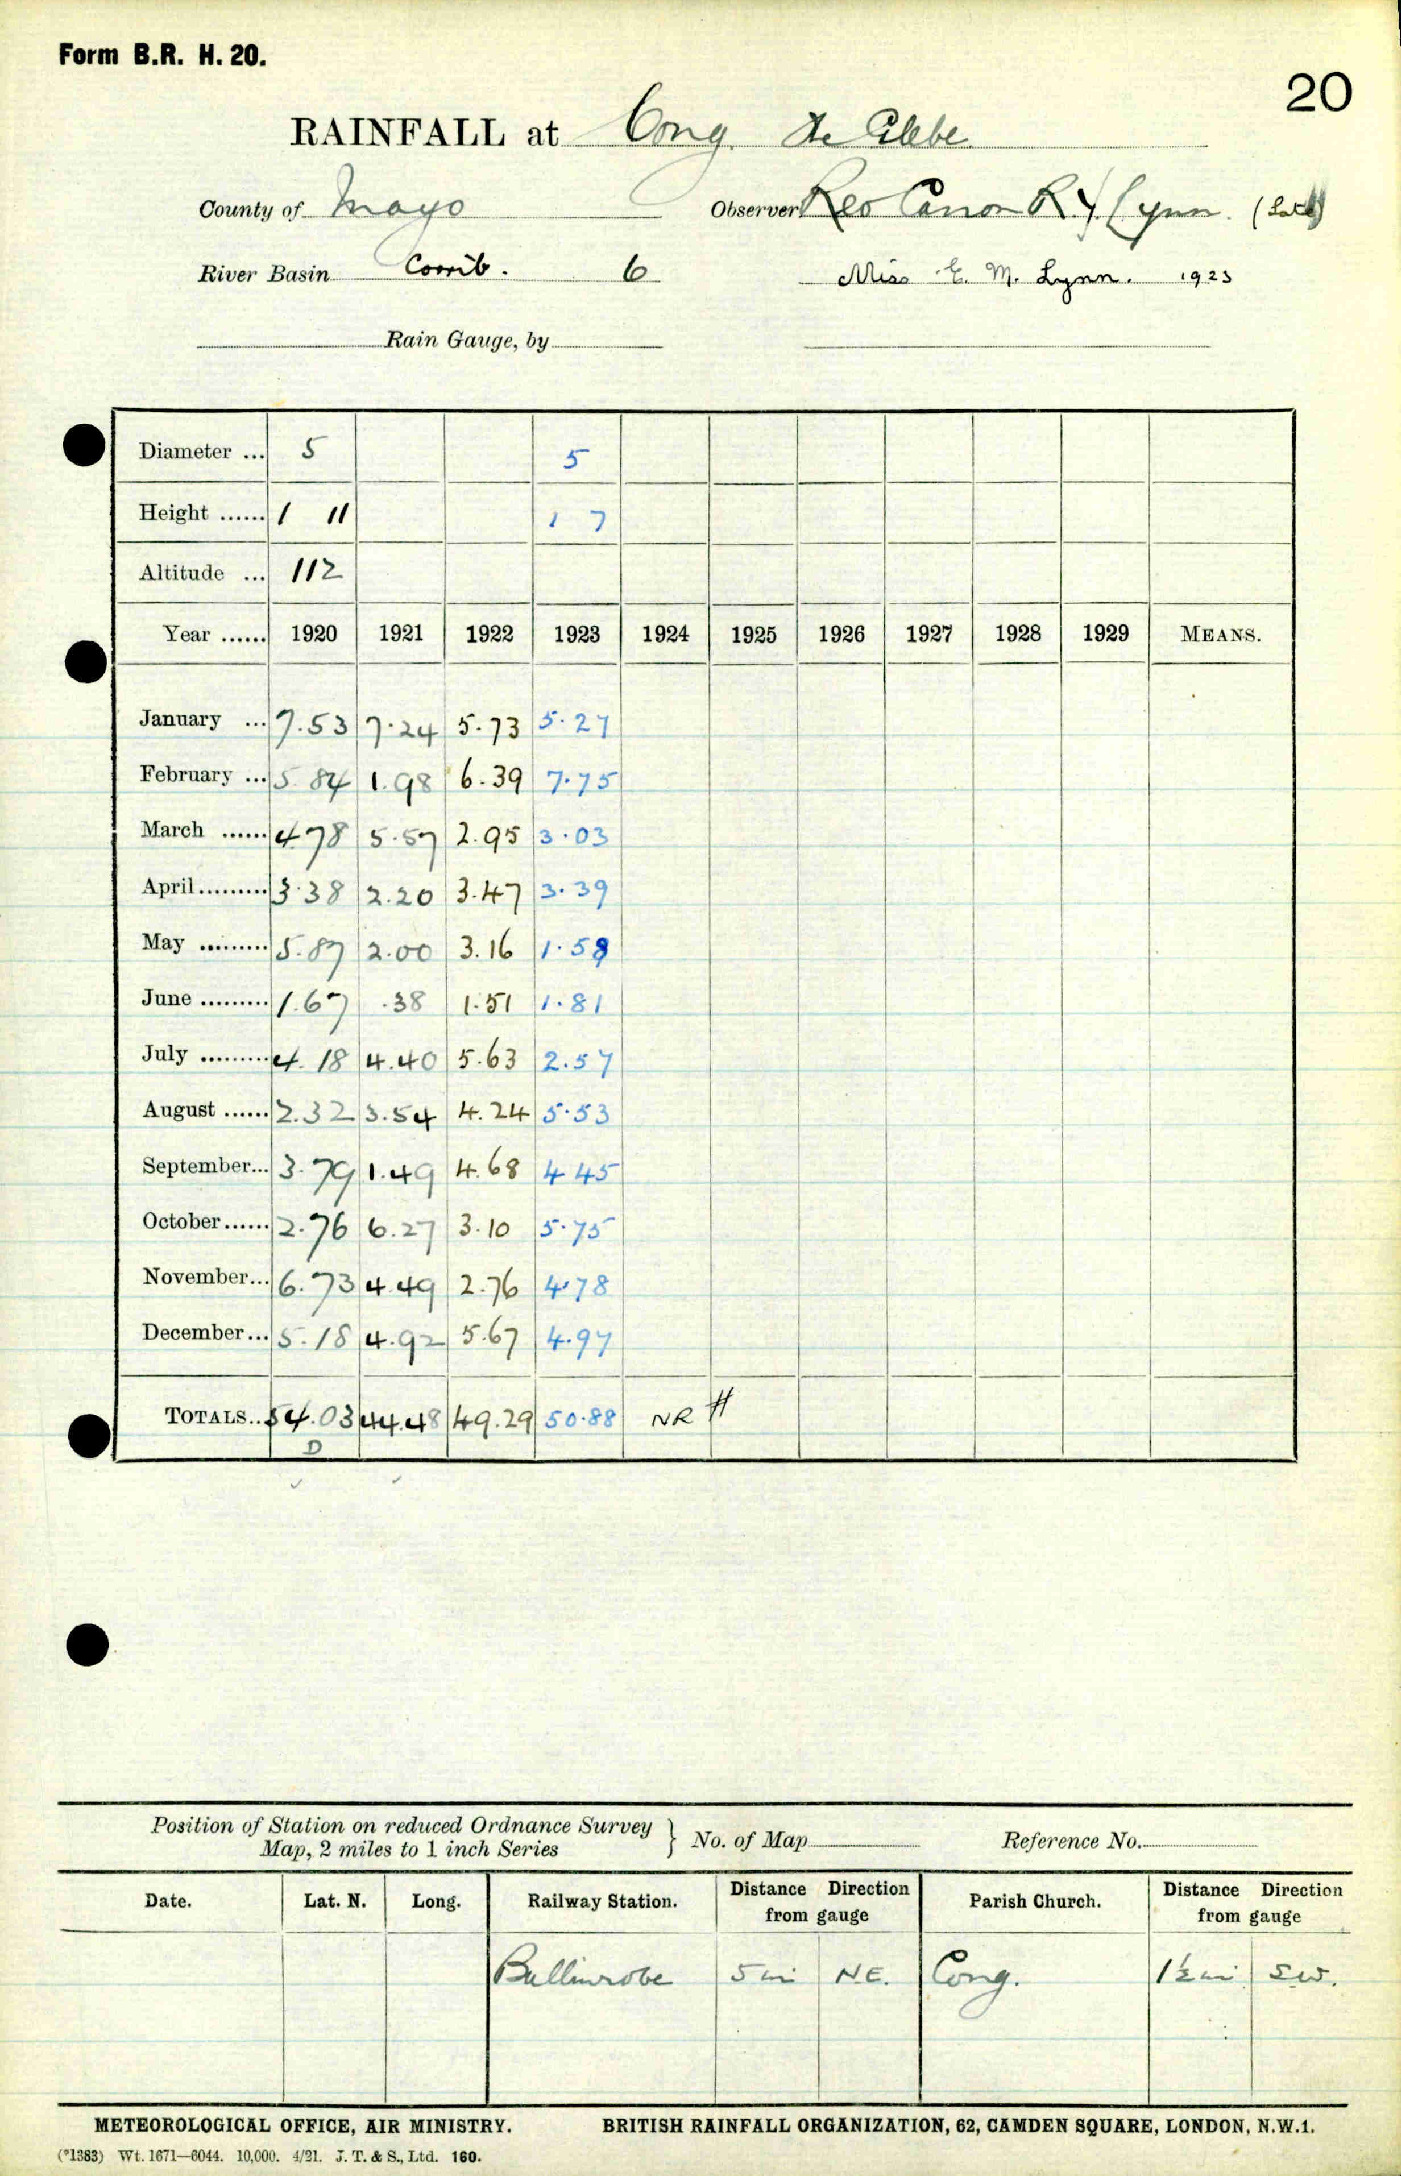 Form B.R. H. 20.
20
RAINFALL at Cong. The Glebe
County of Mayo Observer Rev Canon R. J. Lynn. (Late)
River Basin Corrib. 6 Miss E. M. Lynn. 1923
Rain Gauge, by
Diameter ... 5 5
Height ...... 1 11 1 7
Altitude ... 112
Year ...... 1920 1921 1922 1923 1924 1925 1926 1927 1928 1929 MEANS.
January ... 7.53 7.24 5.73 5.27
February ... 5.84 1.98 6.39 7.75
March ...... 4.78 5.57 2.95 3.03
April ......... 3.38 2.20 3.47 3.39
May ......... 5.87 2.00 3.16 1.58
June ......... 1.67 .38 1.51 1.81
July ......... 4.18 4.40 5.63 2.57
August ...... 2.32 3.54 4.24 5.53
September... 3.79 1.49 4.68 4.45
October ...... 2.76 6.27 3.10 5.75
November... 6.73 4.49 2.76 4.78
December... 5.18 4.92 5.67 4.97
TOTALS.. 54.03 44.48 49.29 50.88 NR #
D
Position of Station on reduced Ordnance Survey
Map, 2 miles to 1 inch Series } No. of Map Reference No.
Date. Lat. N. Long. Railway Station. Distance Direction from gauge Parish Church. Distance Direction from gauge
Ballinrobe 5 mi N.E. Cong. 1½ mi S.W.
METEOROLOGICAL OFFICE, AIR MINISTRY. BRITISH RAINFALL ORGANIZATION, 62, CAMDEN SQUARE, LONDON, N.W.1.
(*1383) Wt. 1671—6044. 10,000. 4/21. J. T. & S., Ltd. 160.